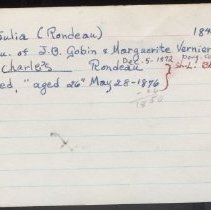 Julia (Rondeau) 184
u. of J.B. Gobin & Marguerite Vernier
Dec. 5-1872
Charles Rondeau St-L.
ed, "aged 26" May 28-1876
26
1850